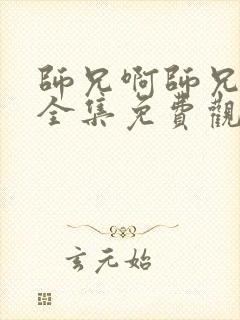 師兄啊師兄
全集免費觀
玄元始